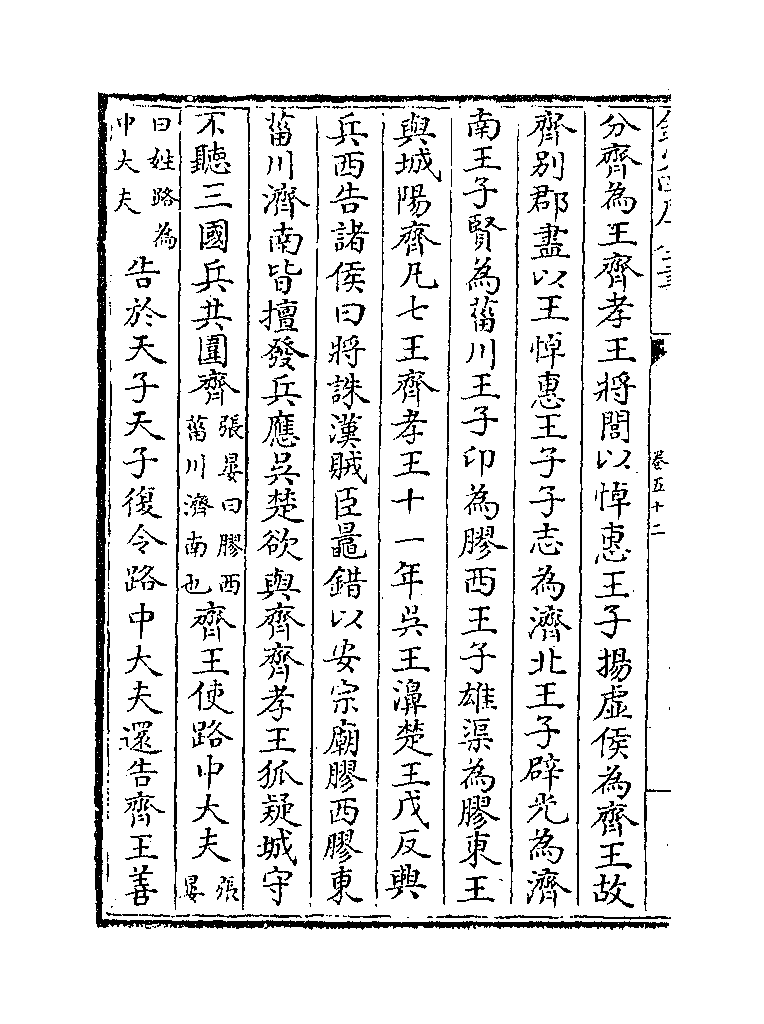 卷五十二
分齊為王齊孝王將閭以悼惠王子揚虛侯為齊王故
齊別郡盡以王悼惠王子子志為濟北王子辟光為濟
南王子賢為菑川王子印為膠西王子雄渠為膠東王
與城陽齊凡七王齊孝王十一年吳王濞楚王戊反興
兵西告諸侯曰將誅漢賊臣鼂錯以安宗廟膠西膠東
菑川濟南皆擅發兵應吳楚欲與齊齊孝王狐疑城守
不聽三國兵共圍齊張晏曰膠西菑川濟南也齊王使路中大夫張晏
曰姓路為中大夫告於天子天子復令路中大夫還告齊王善